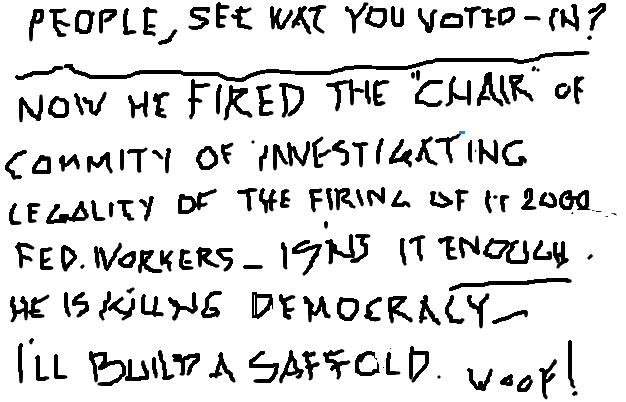 PEOPLE, SEE WAT YOU VOTED-IN?
NOW HE FIRED THE "CHAIR" OF
COMMITY OF INVESTIGATING
LEGALITY OF THE FIRING OF 2000
FED. WORKERS_ ISN'T IT ENOUGH.
HE IS KILLING DEMOCRACY
I'LL BUILD A SAFFOLD. WOOF!